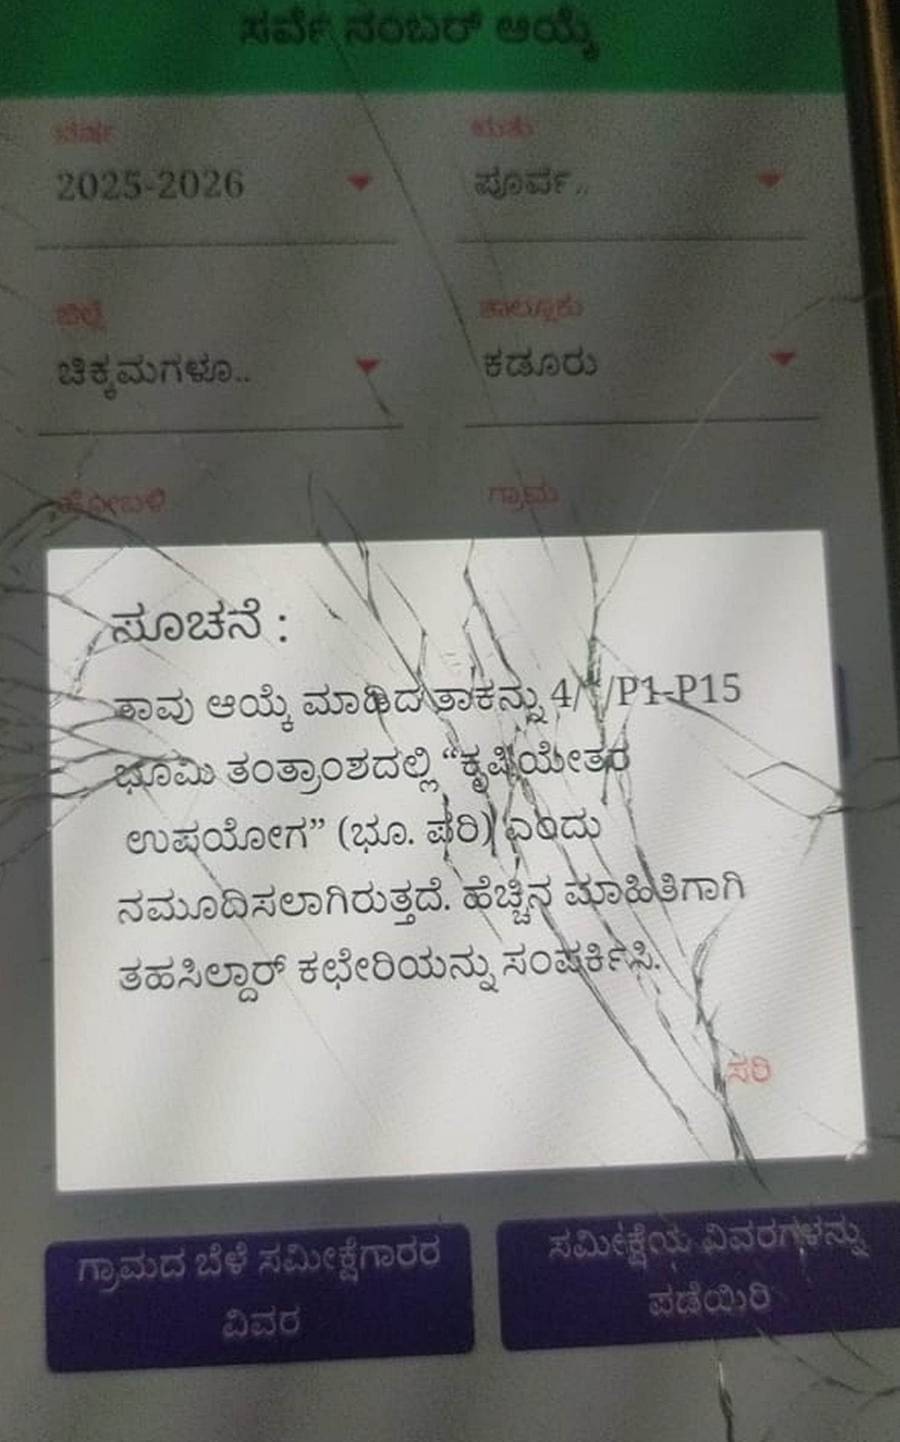 ಸರ್ವೆ ನಂಬರ್ ಆಯ್ಕೆ
ವರ್ಷ ಋತು
2025-2026 ಪೂರ್ವ..
ಜಿಲ್ಲೆ ತಾಲ್ಲೂಕು
ಚಿಕ್ಕಮಗಳೂ.. ಕಡೂರು
ಹೋಬಳಿ ಗ್ರಾಮ
ಸೂಚನೆ :
ತಾವು ಆಯ್ಕೆ ಮಾಡಿದ ತಾಕನ್ನು
ಭೂಮಿ ತಂತ್ರಾಂಶದಲ್ಲಿ “ಕೃಷಿಯೇತರ
ಉಪಯೋಗ” (ಭೂ. ಪರಿ) ಎಂದು
ನಮೂದಿಸಲಾಗಿರುತ್ತದೆ. ಹೆಚ್ಚಿನ ಮಾಹಿತಿಗಾಗಿ
ತಹಸಿಲ್ದಾರ್ ಕಛೇರಿಯನ್ನು ಸಂಪರ್ಕಿಸಿ.
ಸರಿ
ಗ್ರಾಮದ ಬೆಳೆ ಸಮೀಕ್ಷೆಗಾರರ
ವಿವರ
ಸಮೀಕ್ಷೆಯ ವಿವರಗಳನ್ನು
ಪಡೆಯಿರಿ